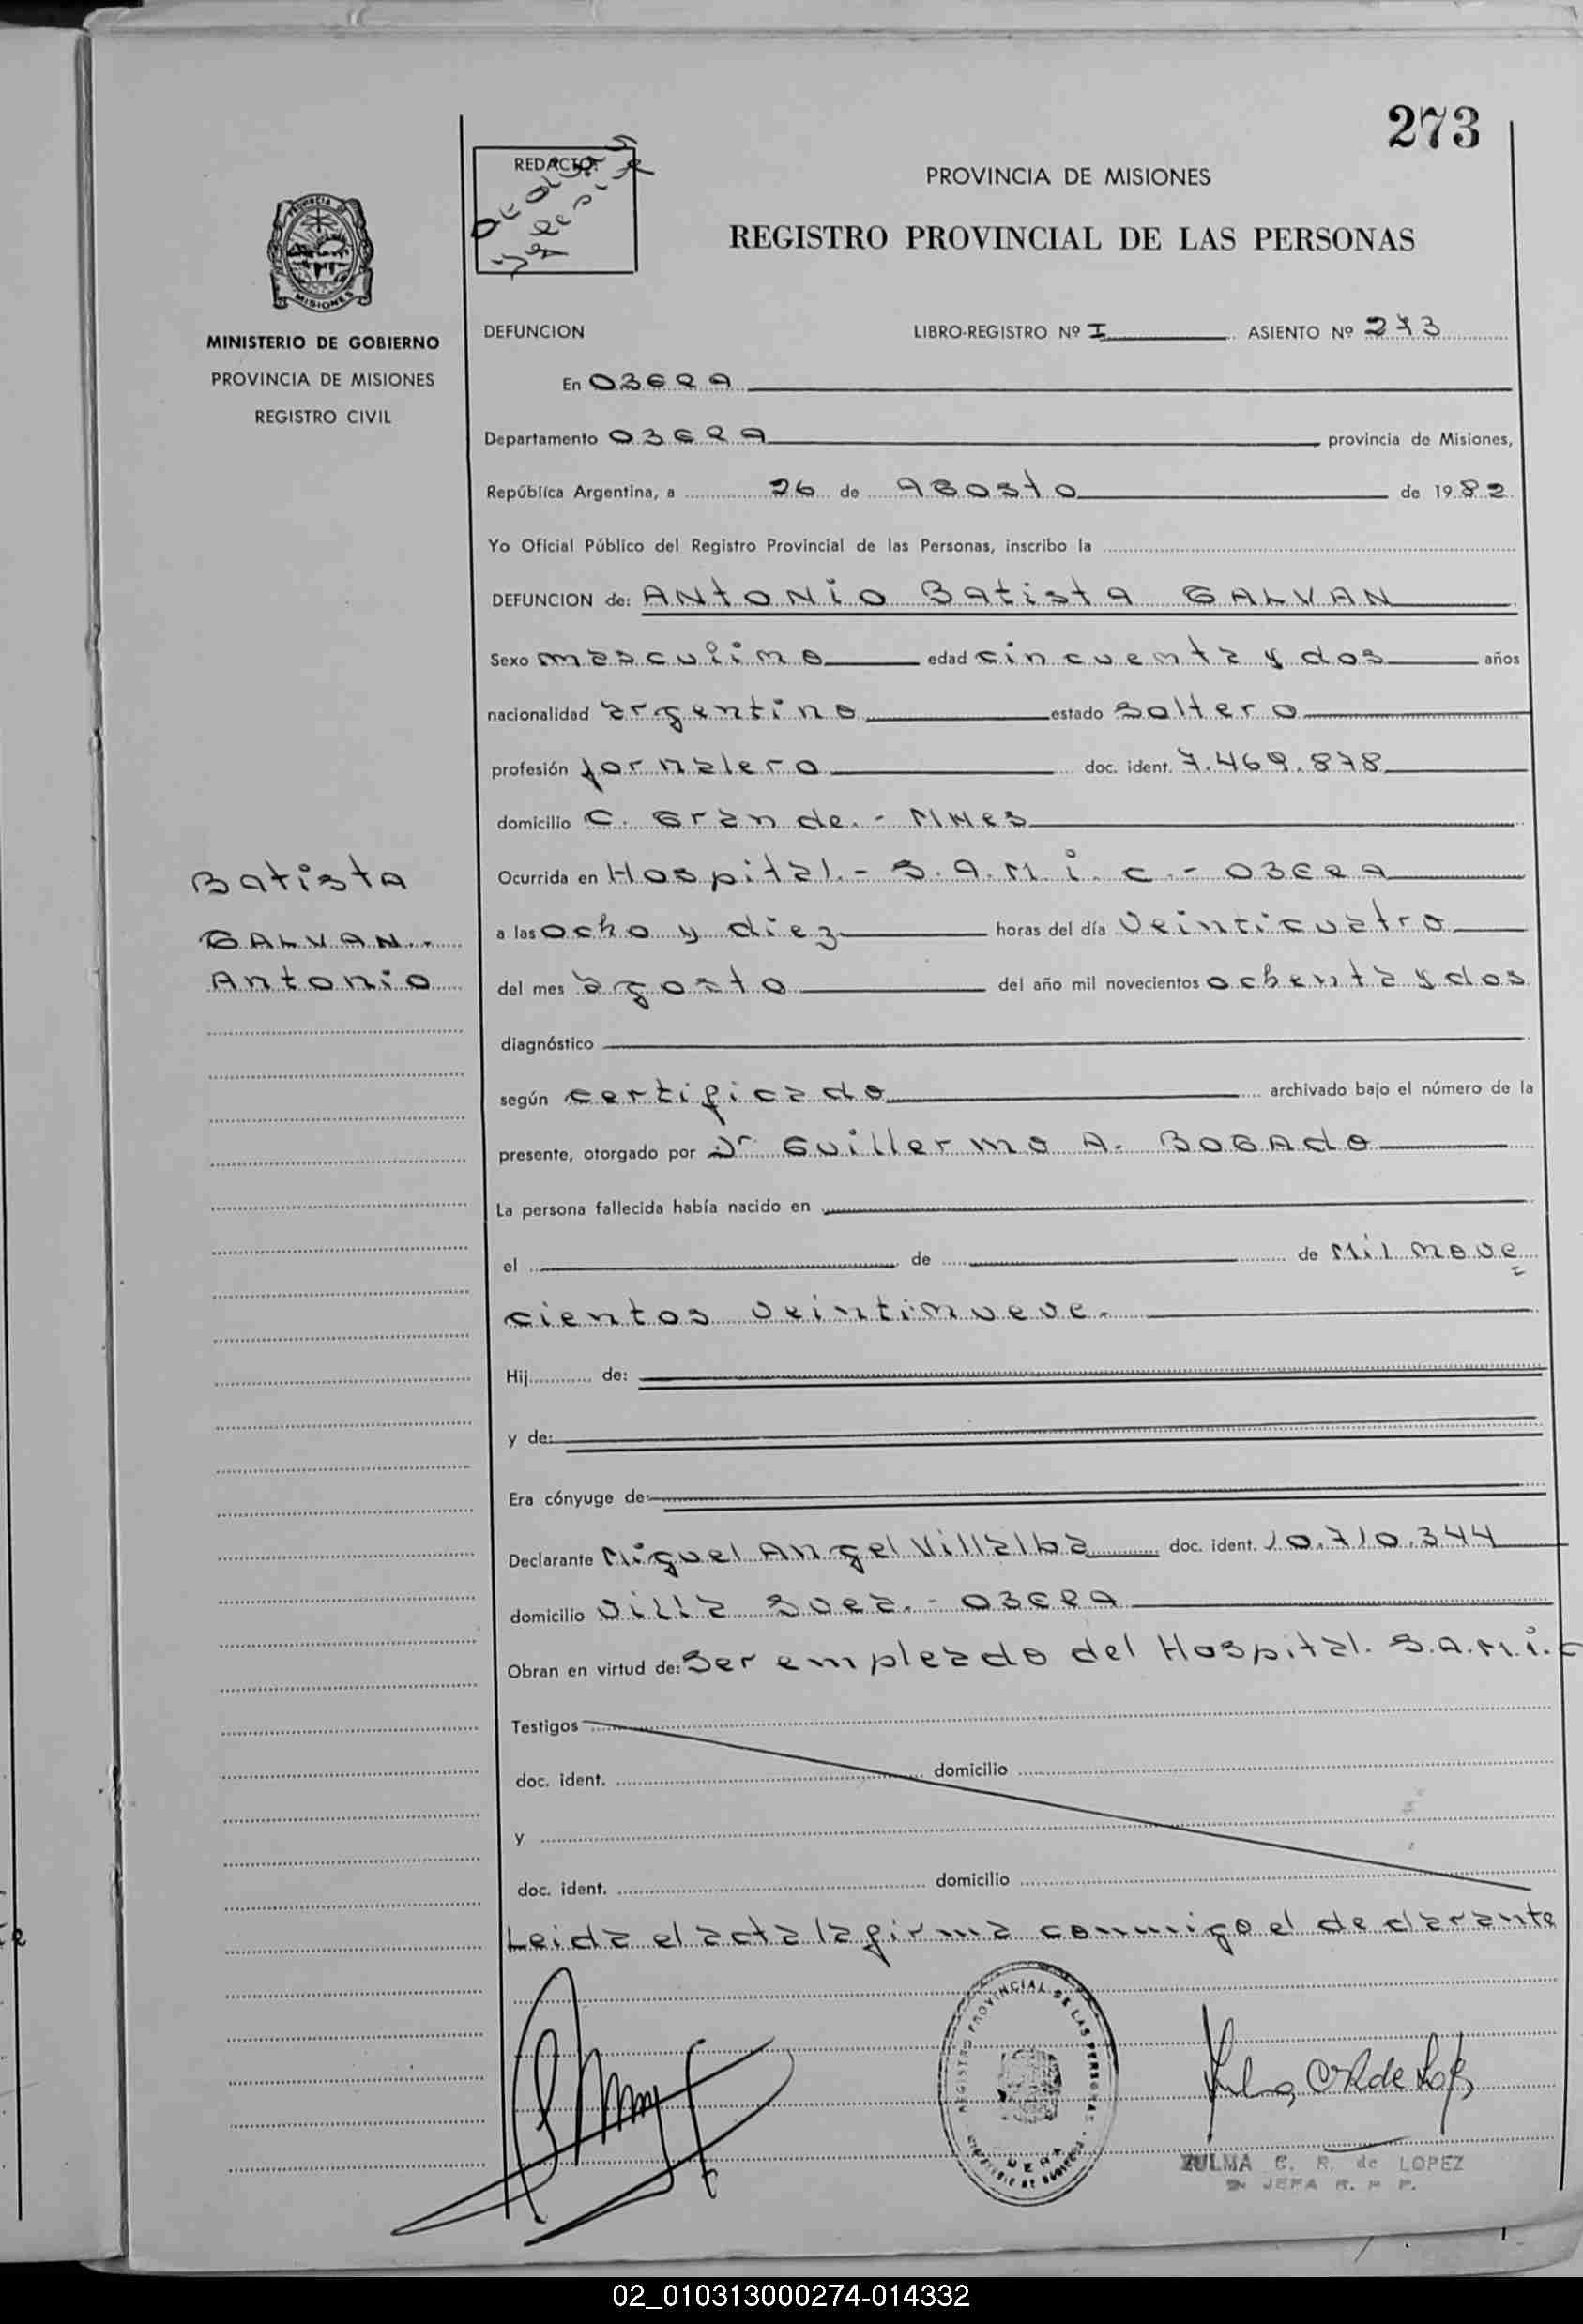 273
REDACTO:
PROVINCIA DE MISIONES
REGISTRO PROVINCIAL DE LAS PERSONAS
PROVINCIA DE
MISIONES
MINISTERIO DE GOBIERNO
PROVINCIA DE MISIONES
REGISTRO CIVIL
DEFUNCION LIBRO-REGISTRO Nº I ASIENTO Nº 273
En OBERA
Departamento OBERA provincia de Misiones,
República Argentina, a 26 de AGOSTO de 1982
Yo Oficial Público del Registro Provincial de las Personas, inscribo la
DEFUNCION de: ANTONIO Batista GALVAN
Sexo masculino edad cincuenta y dos años
nacionalidad argentino estado Soltero
profesión jornalero doc. ident. 7.469.878
domicilio C. Grande.- MNes
Ocurrida en Hospital.- S.A.M.i.C.- OBERA
a las ocho y diez horas del día Veinticuatro
del mes agosto del año mil novecientos ochenta y dos
diagnóstico
según certificado archivado bajo el número de la
presente, otorgado por Dr Guillermo A. BOGAdo
La persona fallecida había nacido en
el de de Mil nove
cientos veintinueve.
Hij de:
y de:
Era cónyuge de:
Declarante Miguel Angel Villalba doc. ident. 10.710.344
domicilio Villa Suea.- OBERA
Obran en virtud de: Ser empleado del Hospital. S.A.M.i.C
Testigos
doc. ident. domicilio
y
doc. ident. domicilio
Leida el acta la firma conmigo el declarante
Batista
GALVAN..
Antonio
REGISTRO PROVINCIAL DE LAS PERSONAS
OBERA
ZULMA C. R. de LOPEZ
JEFA R. P. P.
02_010313000274-014332